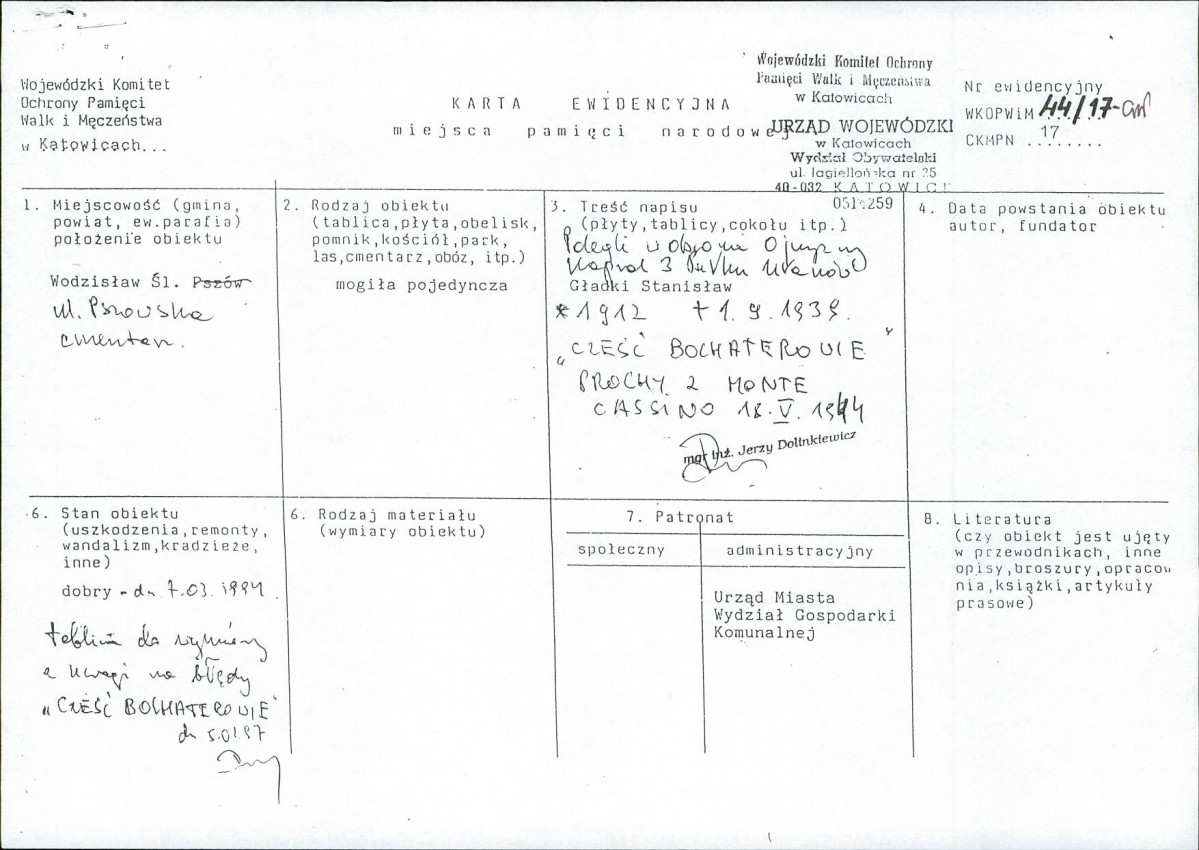 Wojewódzki Komitet
Ochrony Pamięci
Walk i Męczeństwa
w Katowicach...
KARTA EWIDENCYJNA
miejsca pamięci narodowej
Wojewódzki Komitet Ochrony
Pamięci Walk i Męczeństwa
w Katowicach
URZĄD WOJEWÓDZKI
w Katowicach
Wydział Obywatelski
ul. Jagiellońska nr 25
40-032 KATOWICE
Nr ewidencyjny
WKOPWiM 44/17-cm
CKMPN 17
1. Miejscowość (gmina,
powiat, ew.parafia)
położenie obiektu
Wodzisław Śl. Pszów
ul. Pszowska
cmentarz.
2. Rodzaj obiektu
(tablica,płyta,obelisk,
pomnik,kościół,park,
las,cmentarz,obóz, itp.)
mogiła pojedyncza
3. Treść napisu
(płyty,tablicy,cokołu itp.)
Polegli w obronie Ojczyzny
Kapral 3 Pułku Ułanów
Gładki Stanisław
*1912 +1.9.1939.
"CZEŚĆ BOCHATEROWIE"
PROCHY Z MONTE
CASSINO 18.V.1944
mgr inż. Jerzy Dolinkiewicz
4. Data powstania obiektu
autor, fundator
6. Stan obiektu
(uszkodzenia,remonty,
wandalizm,kradzieże,
inne)
dobry - dn 7.03.1994.
tablica do wymiany
z uwagi na błędy
"CZEŚĆ BOCHATEROWIE"
dn 5.01.97
6. Rodzaj materiału
(wymiary obiektu)
7. Patronat
społeczny
administracyjny
Urząd Miasta
Wydział Gospodarki
Komunalnej
8. Literatura
(czy obiekt jest ujęty
w przewodnikach, inne
opisy,broszury,opracow
nia,książki,artykuły
prasowe)